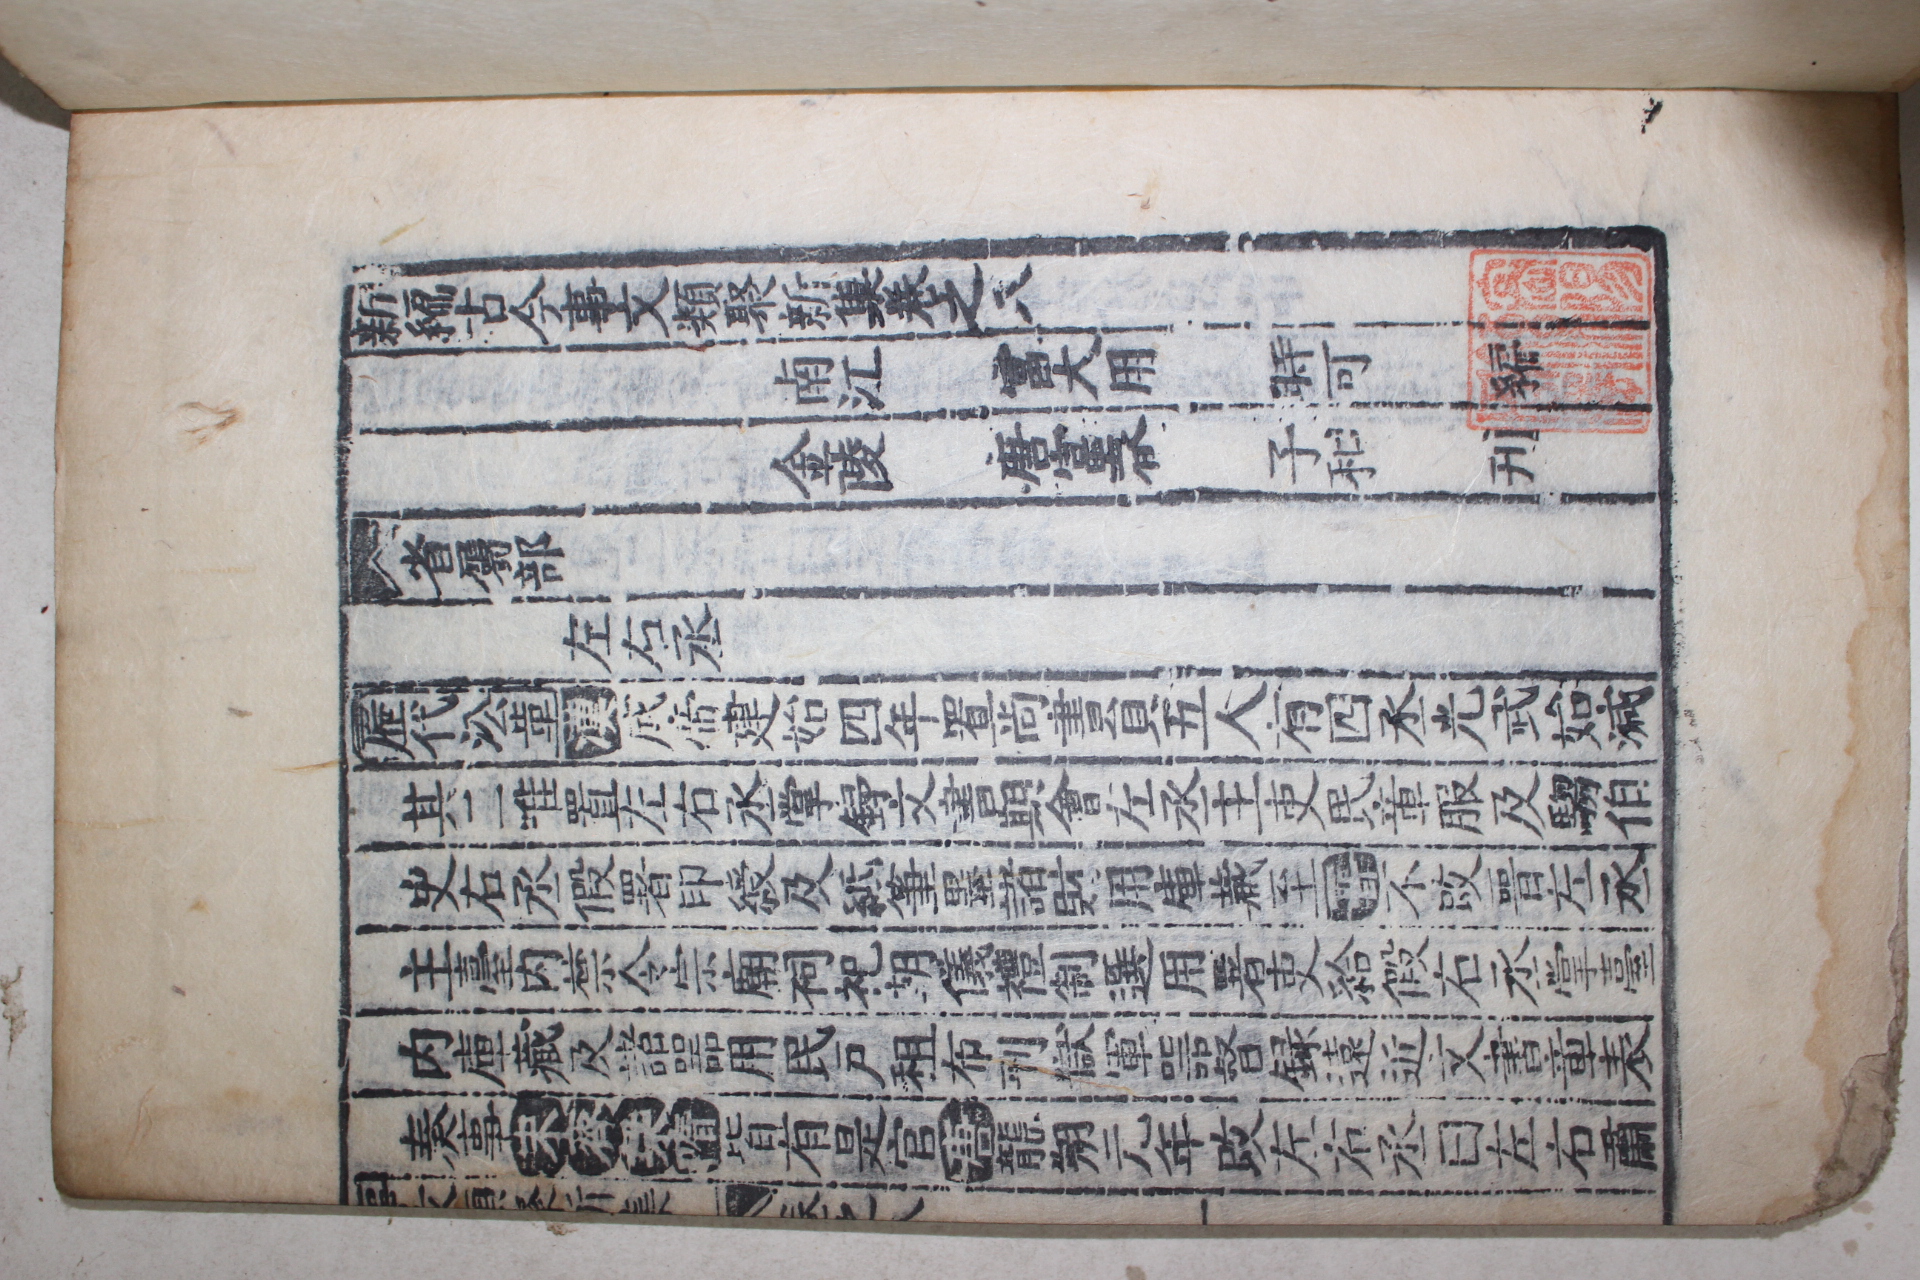 新編古今事文類聚新集卷之八
南江 富大用 時可 編
金陵 唐富春 子和 刊
省屬部
左右丞
歷代沿革漢成帝建始四年置尚書員五人有四丞光武始減
其二唯置左右丞掌錄文書期會左丞主吏民章服及騶伯
史右丞假署印綬及紙筆墨諸財用庫藏至晉不改晉左丞
主臺內禁令宗廟祠祀朝儀禮制選用署吏給假右丞掌臺
內庫藏及諸器用民戶租布刑獄軍器督錄遠近文書章表
奏事宋齊梁陳隋皆有是官唐龍朔元年改左右丞曰左右肅